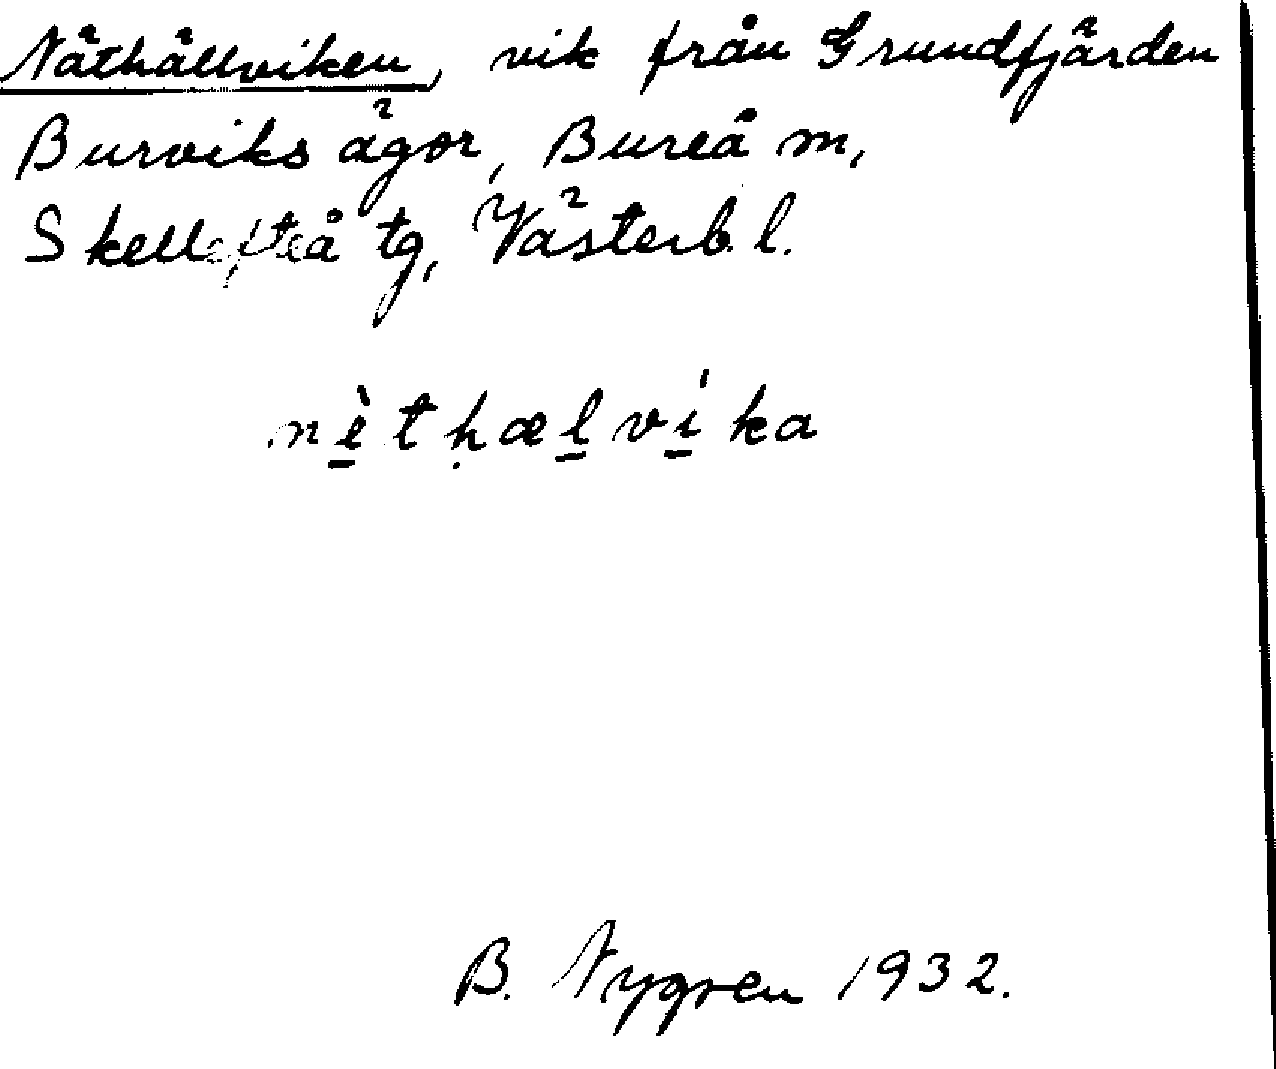 Näthällviken, vik från Grundfjärden
Burviks ägor, Bureå m,
Skellefteå tg, Västerb. l.
nèt̲ḥæl̲ví̲ka
B. Nygren 1932.